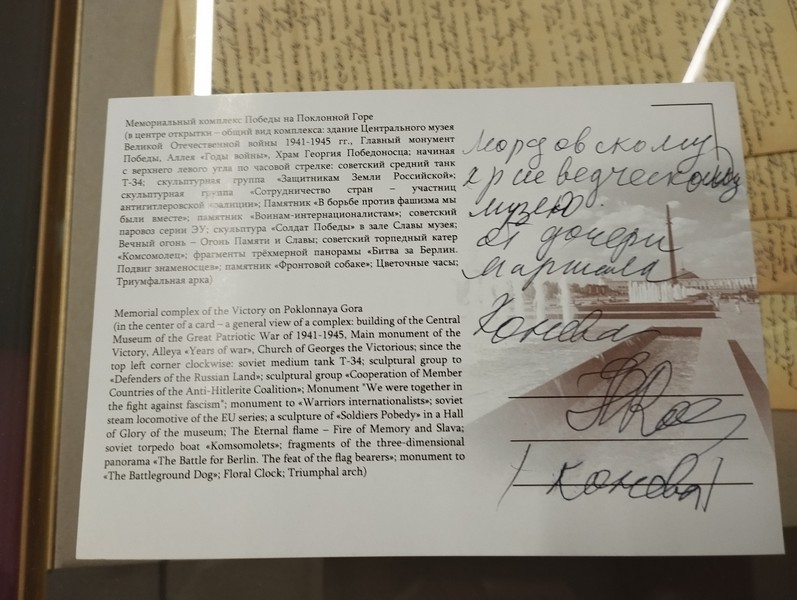 Мемориальный комплекс Победы на Поклонной Горе
(в центре открытки – общий вид комплекса: здание Центрального музея
Великой Отечественной войны 1941-1945 гг., Главный монумент
Победы, Аллея «Годы войны», Храм Георгия Победоносца; начиная
с верхнего левого угла по часовой стрелке: советский средний танк
Т-34; скульптурная группа «Защитникам Земли Российской»;
скульптурная группа «Сотрудничество стран – участниц
антигитлеровской коалиции»; Памятник «В борьбе против фашизма мы
были вместе»; памятник «Воинам-интернационалистам»; советский
паровоз серии ЭУ; скульптура «Солдат Победы» в зале Славы музея;
Вечный огонь – Огонь Памяти и Славы; советский торпедный катер
«Комсомолец»; фрагменты трёхмерной панорамы «Битва за Берлин.
Подвиг знаменосцев»; памятник «Фронтовой собаке»; Цветочные часы;
Триумфальная арка)
Memorial complex of the Victory on Poklonnaya Gora
(in the center of a card – a general view of a complex: building of the Central
Museum of the Great Patriotic War of 1941-1945, Main monument of the
Victory, Alleya «Years of war», Church of Georges the Victorious; since the
top left corner clockwise: soviet medium tank T-34; sculptural group to
«Defenders of the Russian Land»; sculptural group «Cooperation of Member
Countries of the Anti-Hitlerite Coalition»; Monument "We were together in
the fight against fascism"; monument to «Warriors internationalists»; soviet
steam locomotive of the EU series; a sculpture of «Soldiers Pobedy» in a Hall
of Glory of the museum; The Eternal flame – Fire of Memory and Slava;
soviet torpedo boat «Komsomolets»; fragments of the three-dimensional
panorama «The Battle for Berlin. The feat of the flag bearers»; monument to
«The Battleground Dog»; Floral Clock; Triumphal arch)
Мордовскому
краеведческому
музею
от дочери
маршала
Конева
(Конева)